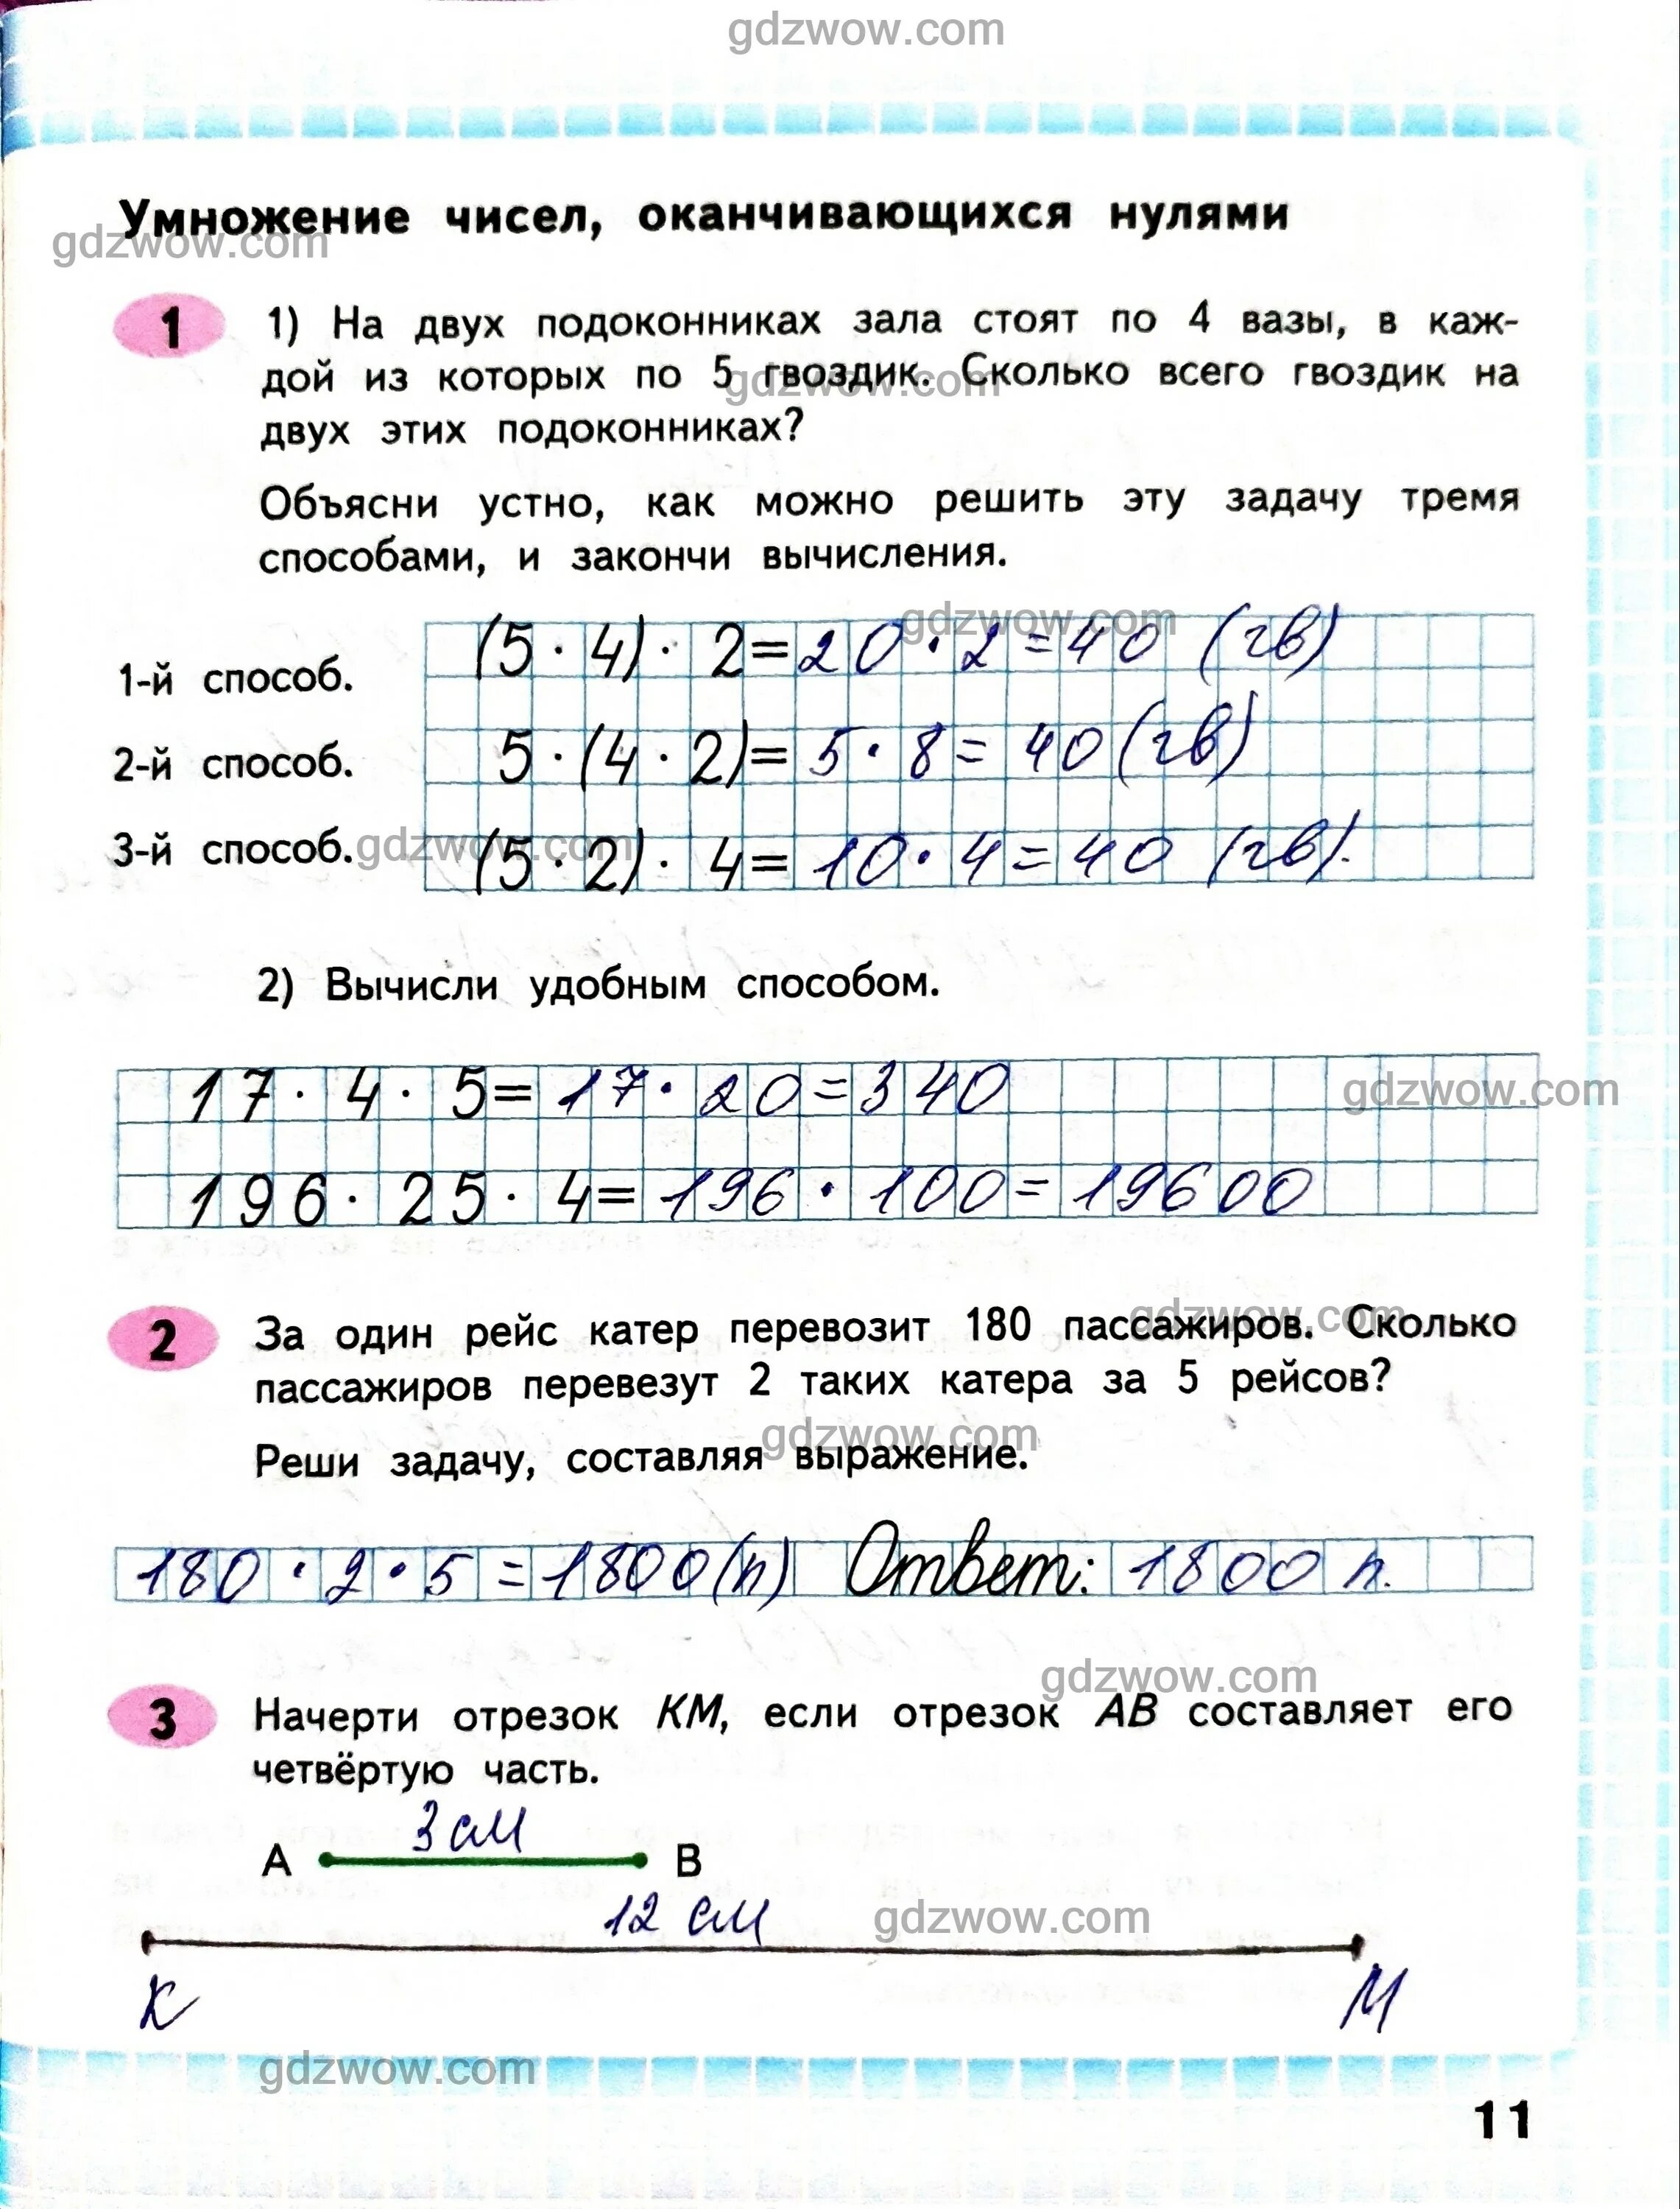 gdzwow.com
Умножение чисел, оканчивающихся нулями
gdzwow.com
1 1) На двух подоконниках зала стоят по 4 вазы, в каж-
дой из которых по 5 гвоздик. Сколько всего гвоздик на
gdzwow.com
двух этих подоконниках?
Объясни устно, как можно решить эту задачу тремя
способами, и закончи вычисления.
gdzwow.com
1-й способ. (5 · 4) · 2 = 20 · 2 = 40 (гв)
2-й способ. 5 · (4 · 2) = 5 · 8 = 40 (гв)
3-й способ. (5 · 2) · 4 = 10 · 4 = 40 (гв).
gdzwow.com
2) Вычисли удобным способом.
17 · 4 · 5 = 17 · 20 = 340
gdzwow.com
196 · 25 · 4 = 196 · 100 = 19600
2 За один рейс катер перевозит 180 пассажиров. Сколько
gdzwow.com
пассажиров перевезут 2 таких катера за 5 рейсов?
gdzwow.com
Реши задачу, составляя выражение.
180 · 2 · 5 = 1800 (п) Ответ: 1800 п.
gdzwow.com
3 Начерти отрезок КМ, если отрезок АВ составляет его
четвёртую часть.
3 см
А В
12 см
gdzwow.com
К М
gdzwow.com
11